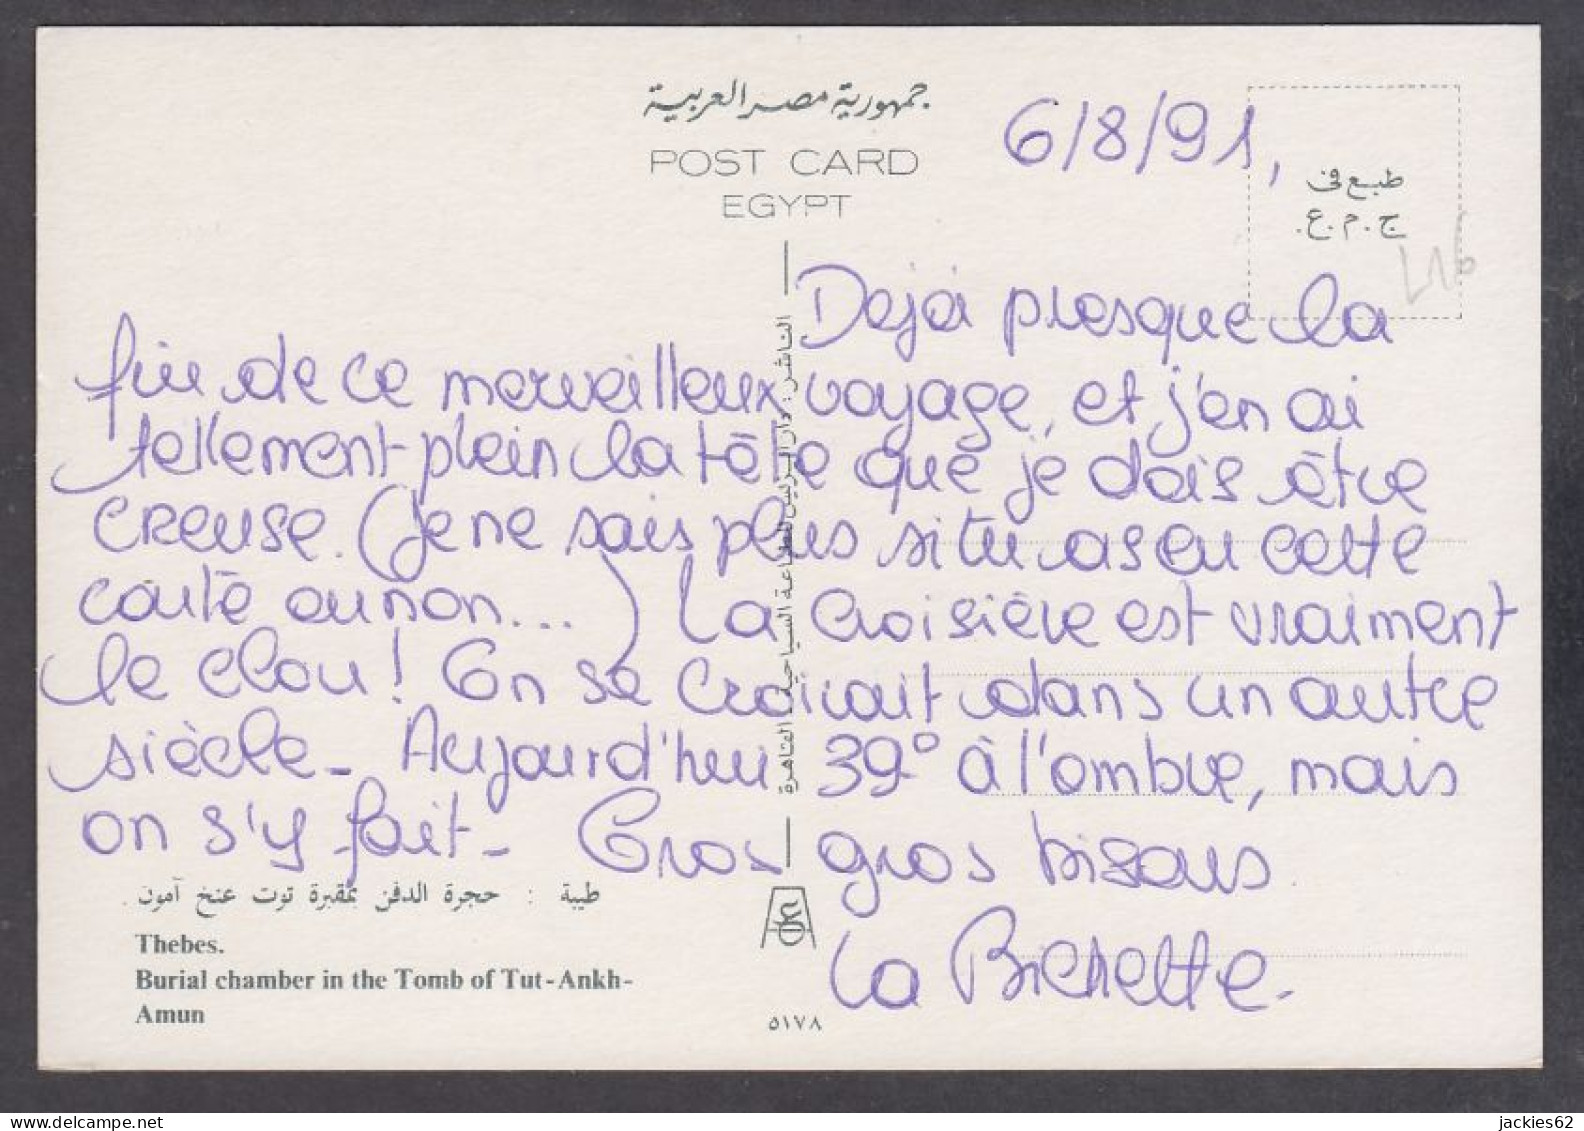 جمهورية مصر العربية
POST CARD
EGYPT
6/8/91,
طبع في
ج.م.ع.
Dejà presque la
fin de ce merveilleux voyage, et j'en ai
tellement plein la tête que je dois être
creuse. (Je ne sais plus si tu as eu cette
carte ou non...) La croisière est vraiment
le clou! On se croirait dans un autre
siècle - Aujourd'hui 39° à l'ombre, mais
on s'y fait - Gros gros bisous
La Bichette.
الناشر : دار الرئيس للطباعة السياحية القاهرة
طيبة : حجرة الدفن بمقبرة توت عنخ آمون.
Thebes.
Burial chamber in the Tomb of Tut-Ankh-
Amun
٥١٧٨
jackies62
www.delcampe.net